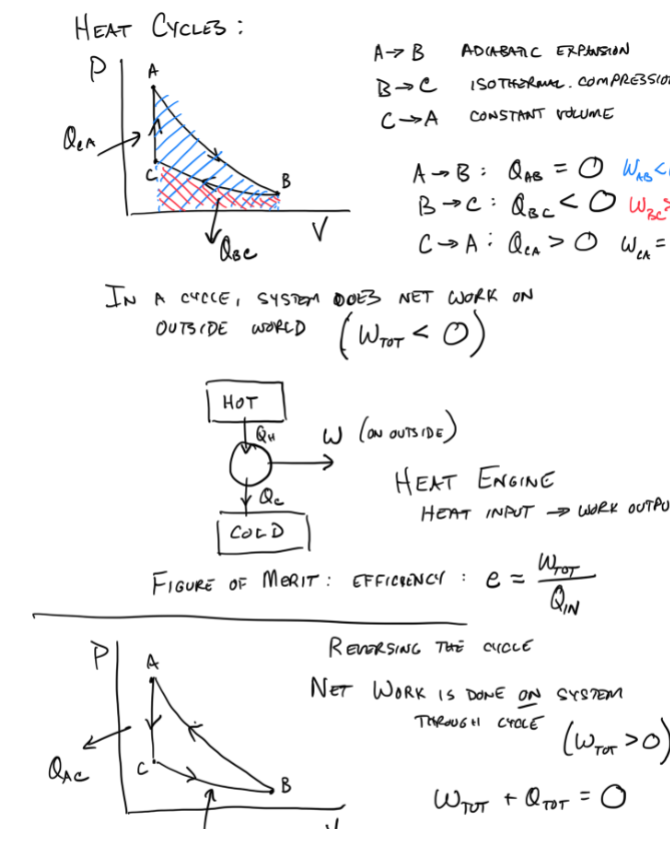 HEAT CYCLES:
P
A
Q_CA
C
B
V
Q_BC
A→B ADIABATIC EXPANSION
B→C ISOTHERMAL. COMPRESSIO
C→A CONSTANT VOLUME
A→B: Q_AB = 0 W_AB <
B→C: Q_BC < 0 W_BC >
C→A: Q_CA > 0 W_CA =
IN A CYCLE, SYSTEM DOES NET WORK ON
OUTSIDE WORLD (W_TOT < 0)
HOT
Q_H
W (ON OUTSIDE)
Q_C
COLD
HEAT ENGINE
HEAT INPUT → WORK OUTPU
FIGURE OF MERIT: EFFICIENCY: e = W_TOT / Q_IN
REVERSING THE CYCLE
P
A
Q_AC
C
B
NET WORK IS DONE ON SYSTEM
THROUGH CYCLE (W_TOT > 0)
W_TOT + Q_TOT = 0